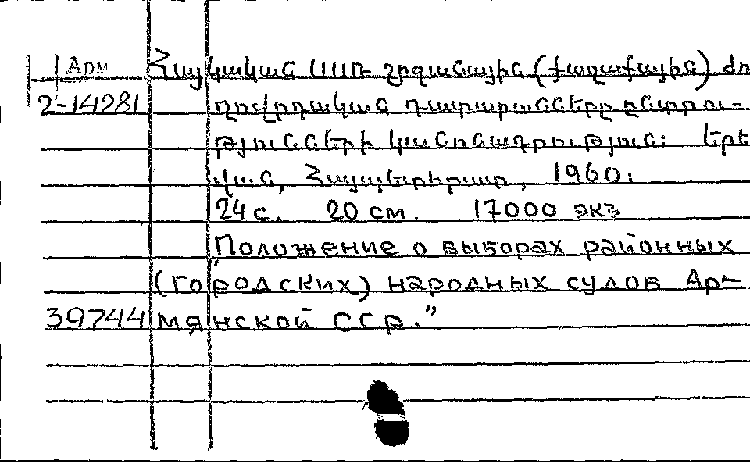 Арм Հայկական ՍՍՌ շրջանային (քաղաքային) ժո
2-14281 ղովրդական դատարանները ընտրու-
թյունների կանոնադրություն: Երե
վան, Հայպետհրատ, 1960:
24 с. 20 см. 17000 экз
"Положение о выборах районных
(городских) народных судов Ар-
39744 мянской ССР."